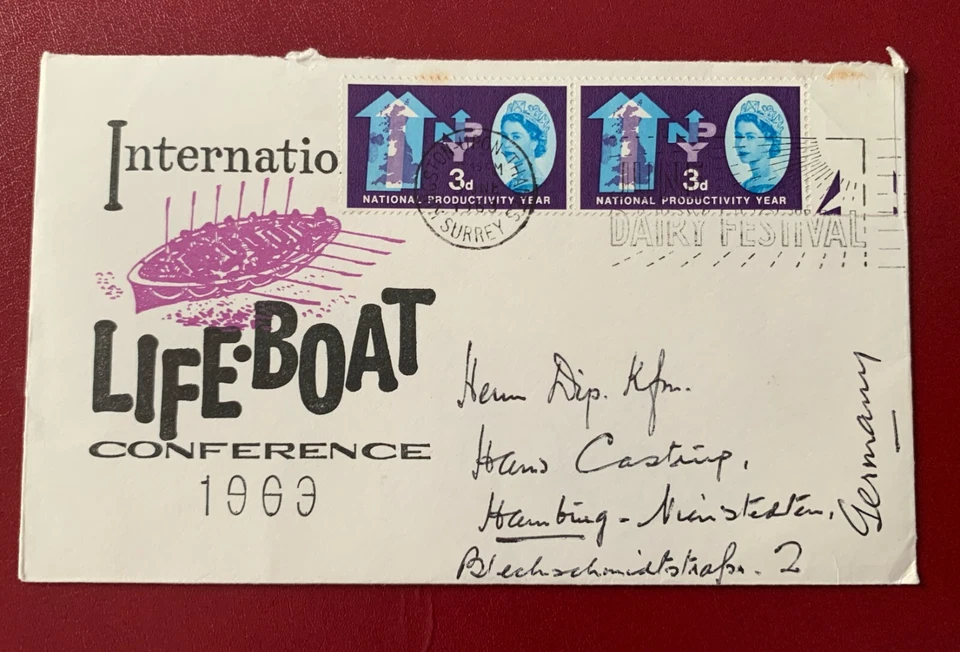 Internatio
LIFE·BOAT
CONFERENCE
1963
NPY
3d
NATIONAL PRODUCTIVITY YEAR
NPY
3d
NATIONAL PRODUCTIVITY YEAR
SURREY
DAIRY FESTIVAL
Herrn Dip. Kfm.
Hans Casting,
Hamburg - Nienstedten,
Blechschmidtstraße. 2
Germany